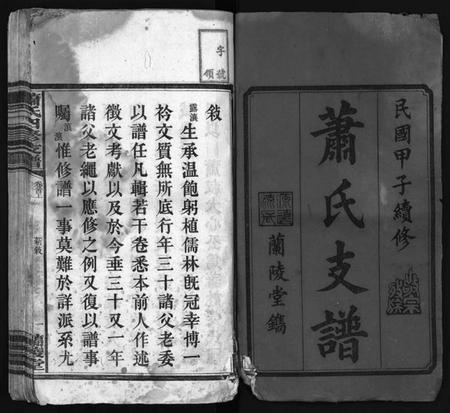 民國甲子續修
蕭氏支譜
蘭陵堂鐫
字號
領
敘
露濃生承溫飽躬植儒林旣冠幸博一
衿文質無所底行年三十諸父老委
以譜任凡輯若干卷悉本前人作述
徵文考獻以及於今垂三十又一年
諸父老繩以應修之例又復以譜事
囑濃濃惟修譜一事莫難於詳派系尤
新敘
一
蘭陵堂